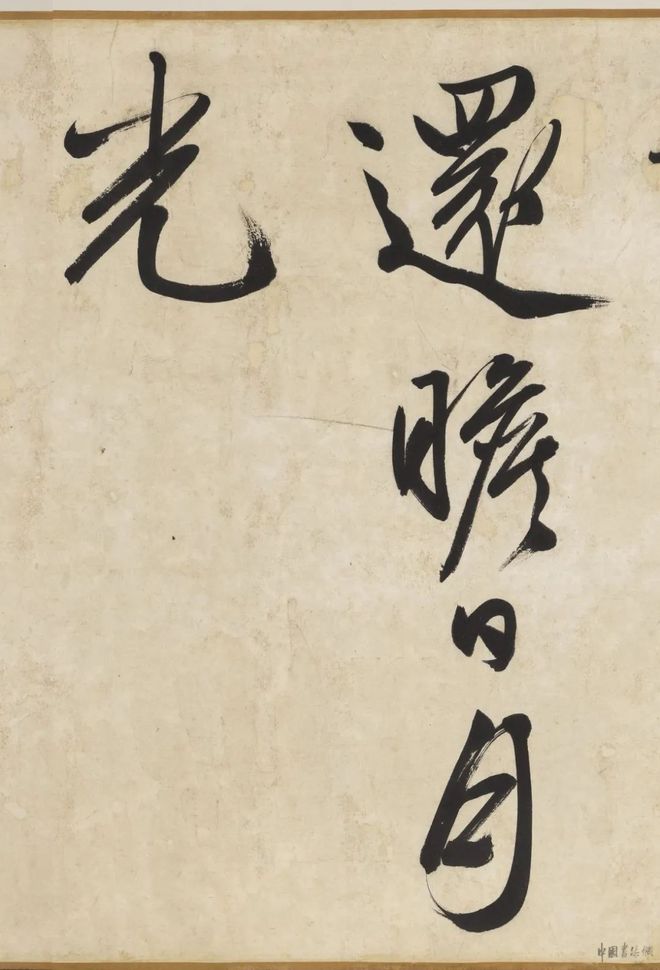 還瞻日月
光
中國書法網